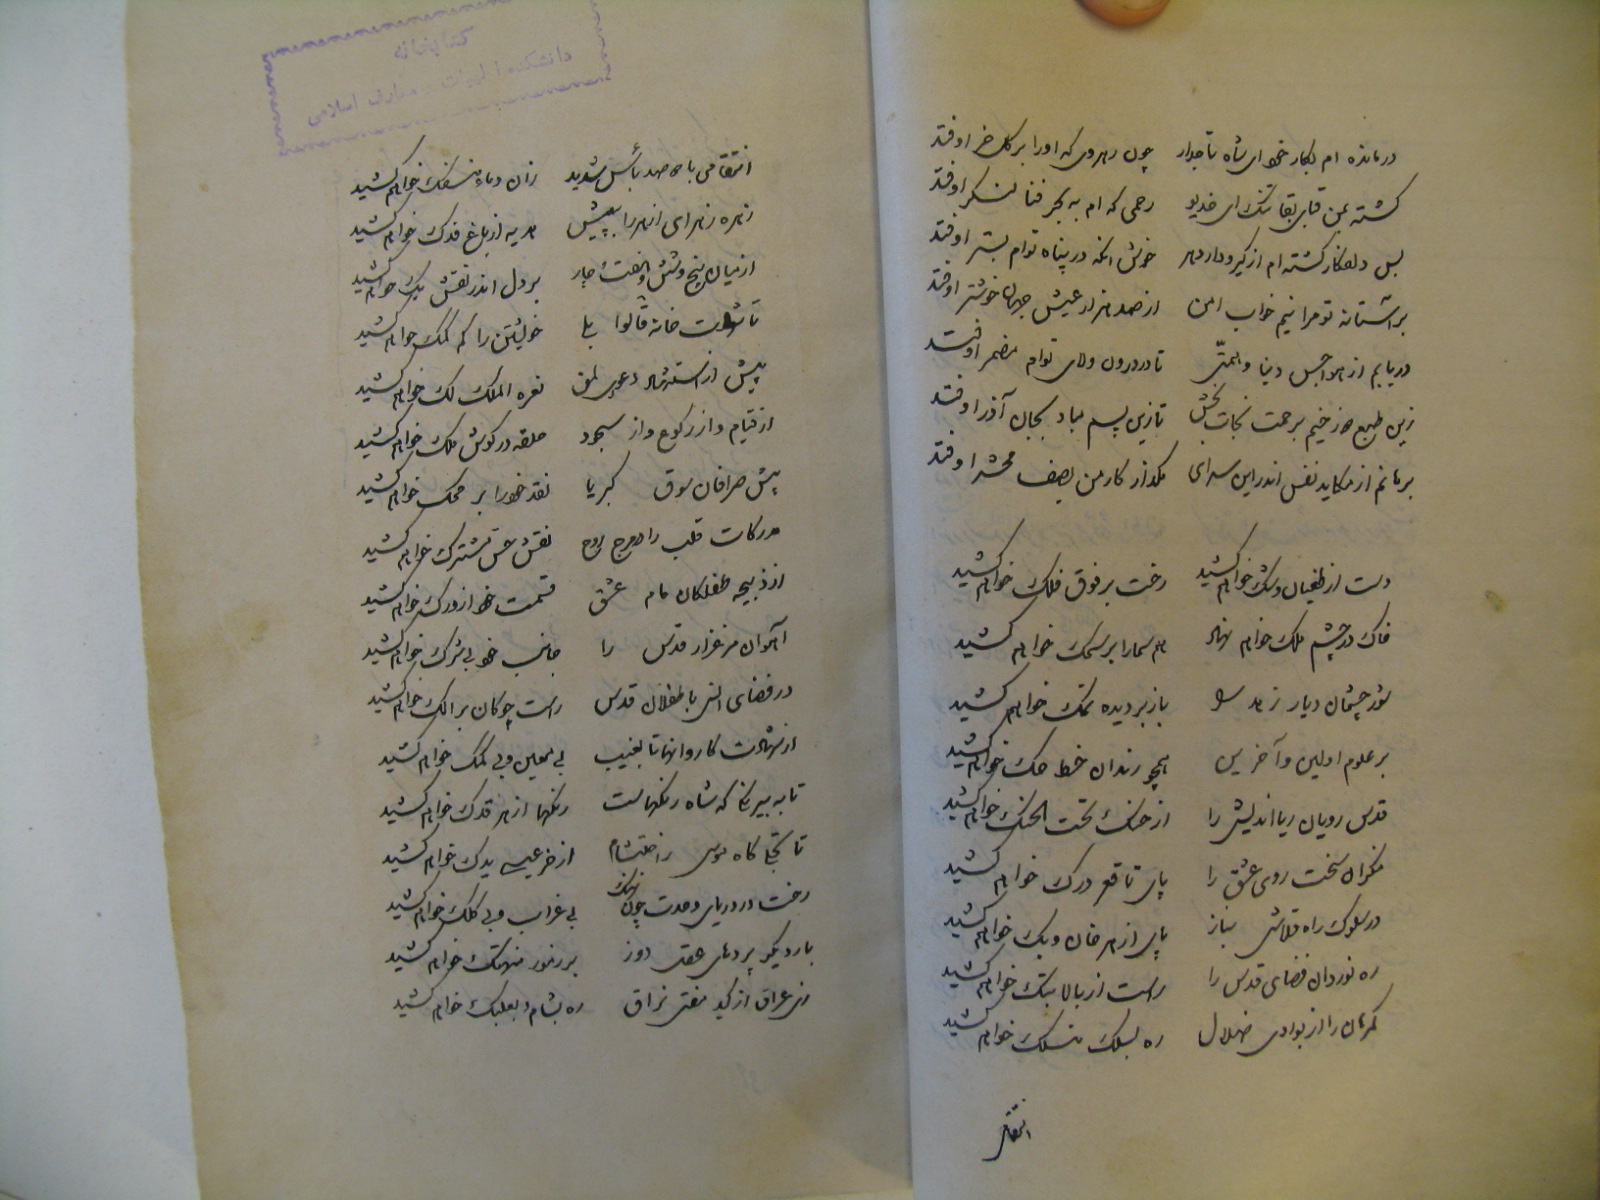 درمانده ام بکار خود ای شاه تاجدار چون رهروی که او را بر گل خر اوفتد
گشته بمن قبای بقا تنگ ای خدیو رحمی که ام به بحر فنا لنگر اوفتد
بس دلفکار گشته ام از گیرودار دهر خوش آنکه در پناه توام بستر اوفتد
بر آستانه تو مرا نیم خواب امن از صد هزار عیش جهان خوشتر اوفتد
دریابم از هواجس دنیا و همتی تا در درون ولای توام مضمر اوفتد
زین طبع دوزخیم برحمت نجات بخش تا زین پسم مباد بجان آذر اوفتد
برهانم از مکاید نفس اندر این سرای مگذار کار من بصف محشر اوفتد
دست از طغیان و شک خواهم کشید رخت بر فوق فلک خواهم کشید
خاک در چشم ملک خواهم نهاد هم سما را بر سمک خواهم کشید
شور چشمان دیار زهد را باز بر دیده نمک خواهم کشید
بر علوم اولین و آخرین همچو رندان خط حک خواهم کشید
قدس رویان ریا اندیش را از حنک تحت الحنک خواهم کشید
منکران سخت روی عشق را پای تا قعر درک خواهم کشید
در سلوک راه قلاشی نیاز پای از هر خان و بک خواهم کشید
ره نوردان فضای قدس را راست از بالا بتک خواهم کشید
گمرهان را از بوادی ضلال ره بسلک منسلک خواهم کشید
انتقامی
انتقامی با دو صد بأس شدید زان دماء منسفک خواهم کشید
زهره زهرای ازهر را به پیش هدیه از باغ فدک خواهم کشید
از میان پنج و شش و هفت و چار بر دل اندر نقش یک خواهم کشید
تا شهادت خانه قالوا بلی خویشتن را کم کمک خواهم کشید
پیش از استشهاد دعوی لمن نعره الملک لک خواهم کشید
از قیام و از رکوع و از سجود حلقه در گوش ملک خواهم کشید
پیش صرافان سوق کبریا نقد خود را بر محک خواهم کشید
مدرکات قلب را در درج روح نقش حس مشترک خواهم کشید
از ذبیحه طفلکان مام عشق قسمت خود از ورک خواهم کشید
آهوان مرغزار قدس را جانب خود بی شرک خواهم کشید
در فضای انس با طفلان قدس راست چوگان بر الک خواهم کشید
از شهادت کاروانها تا بغیب بی معین و بی کمک خواهم کشید
تا به بیرنگی که شاه رنگهاست رنگها از هر قدک خواهم کشید
تا تجلی گاه موسی راختشام از خر عیسی یدک خواهم کشید
رخت در دریای وحدت چون نهنگ بی غراب و بی کلک خواهم کشید
بار دیگر پردهای هفتی دوز بر رخ منهتک خواهم کشید
زی عراق از کید مفتی نراق ره بشام و بعلبک خواهم کشید